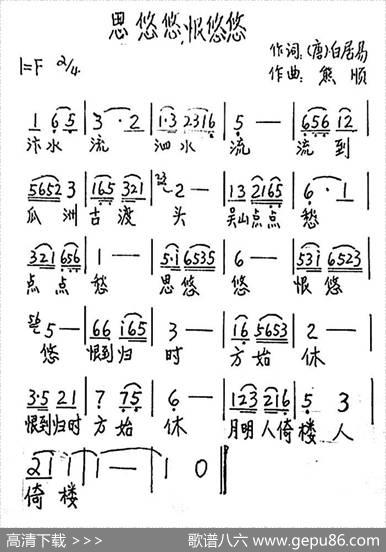 思悠悠,恨悠悠
作词:(唐)白居易
1=F 2/4 作曲: 熊顺
1 6 5 | 3 · 2 | 1·3 2316 | 5 — | 656 12 |
汴水 流 泗水 流 流 到
5652 3 | 165 321 | 2 — | 13 2165 | 6 · 1 |
瓜 洲 古 渡 头 吴山点点 愁
321 656 | 1 — | 5·1 6535 | 6 — | 531 6523 |
点 点 愁 思 悠 悠 恨 悠
5 — | 66 165 | 3 — | 16 5653 | 2 — |
悠 恨到归 时 方 始 休
3·5 21 | 7 75 | 6 — | 123 216 | 5 3 |
恨到归时 方 始 休 月明人倚 楼 人
21 1 | 1 — | 1 0 ‖
倚 楼
高清下载 >>> 歌谱八六 www.gepu86.com